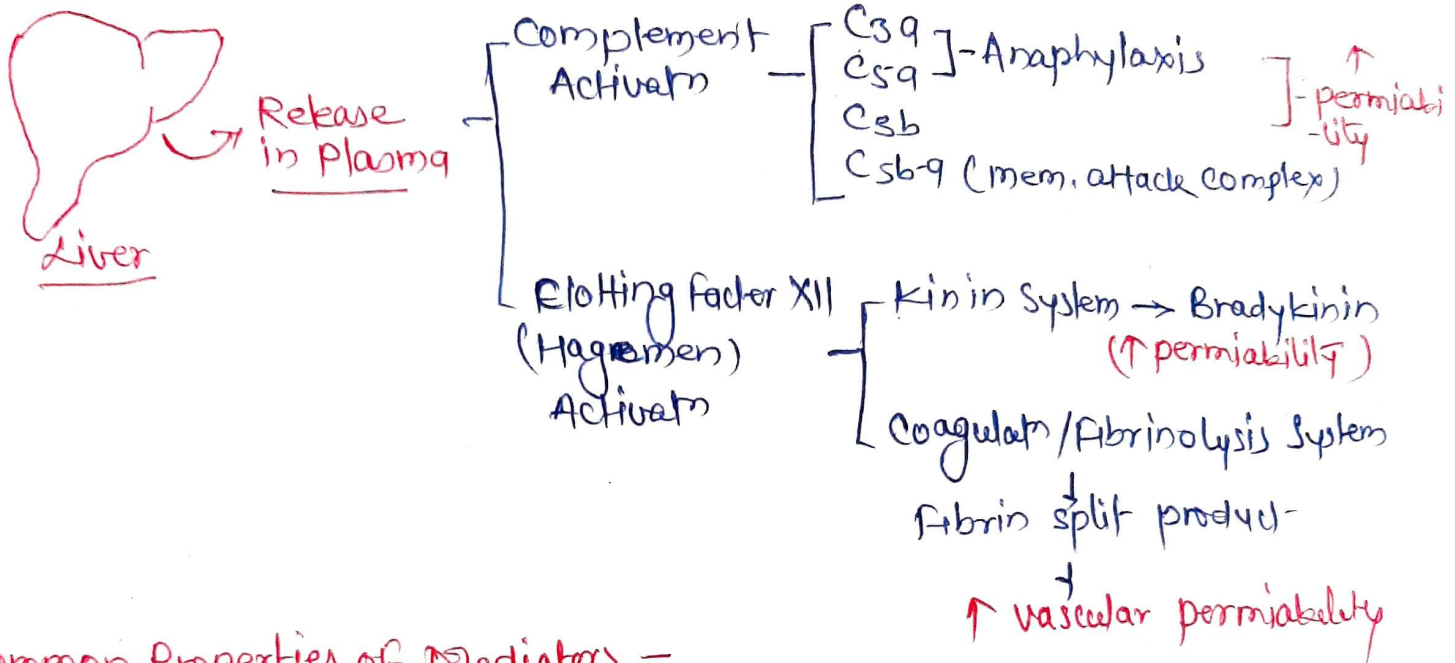 Liver
Release
in Plasma
Complement
Activatn
C3a
C5a
]-Anaphylaxis
C3b
C5b-9 (mem. attack complex)
↑
permiabi
-lity
Clotting factor XII
(Hagemen)
Activatn
Kinin System → Bradykinin
(↑ permiability)
Coagulatn/Fibrinolysis System
↓
Fibrin split product
↓
↑ vascular permiability
ommon Properties of Mediators –